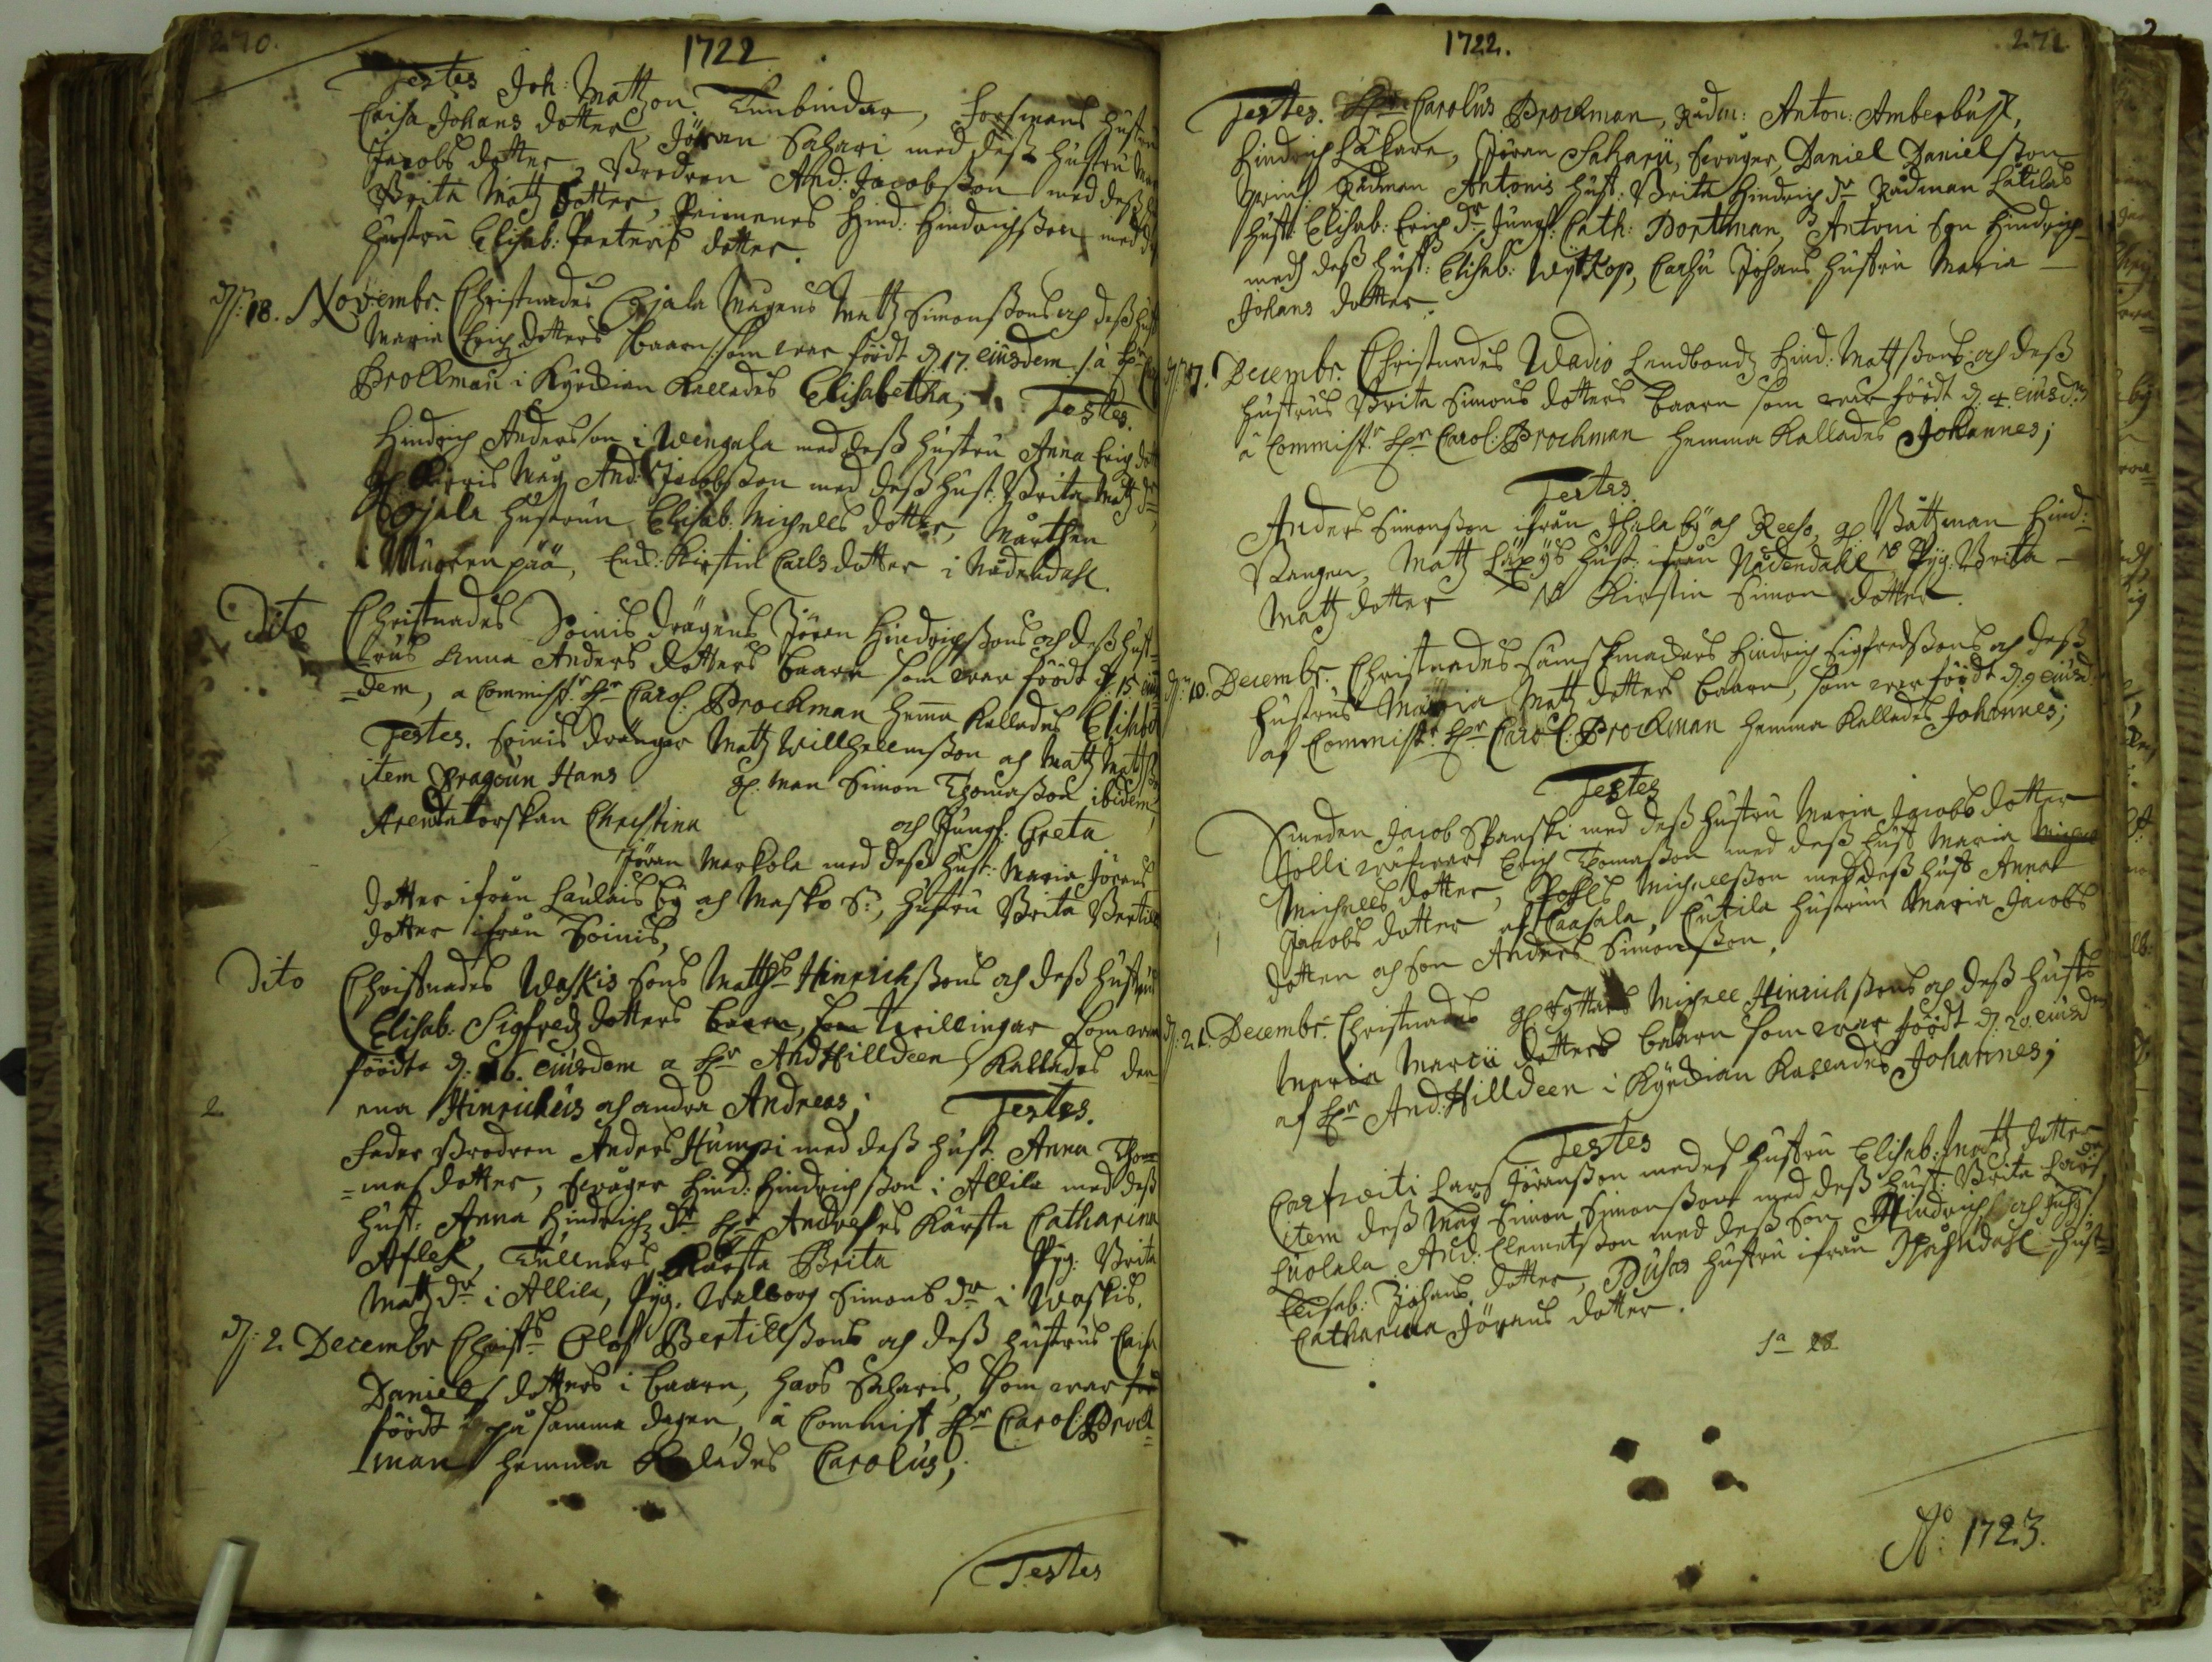 270.
1722
Testes Joh: Mattzon Tunbindar, Forsmans hustru
Caisa Johans dotter, Jöran Sahari med dess hustru
Jacobs dotter, Brodren And: Jacobsson med dess
Brita Matz dotter, Hind: Hindrichsson med
hustru Elisab: Peeters dotter.
d: 18. Novembr. Christnades Ojala Mågens Matz Simonssons och dess hust
Maria Erich dotters baarn som war född d. 17. eiusdem, à Hr
Brockman i Kyrckian kallades Elisabetha; Testes.
Hindrich Andersson i Wengala med dess hustru Anna Erich dotter
Måg And: Jacobsson med dess hust: Brita Matz dr
Ojala hustrun Elisab: Michells dotter, Mårthen
i Muorenpää, Enk: Kirstin Carlsdotter i Nådendahl.
Dito Christnades Soinis drägens Jöran Hindrichssons och dess hust=
=rus Anna Anders dotters baarn som war född d. 15. eius=
=dem, a Commist: Hr Carol: Brockman hemma kallades Elisabet
Testes. Soinis Drängar Matz Willhellmsson och Matz Matz
item Dragoun Hans gl. man Simon Thomasson ibidem,
Arendatorskan Christina och Jungf: Greta
Jöran Markola med dess hust: Maria Jörans
dotter ifrån Laulais by och Masko S:, hustru Brita Bertills
dotter ifrån Soinis,
Dito Christnades Waskis Sons Matths Hinrichssons och dess hustrus
Elisab: Sigfredz dotters baarn, Som Twillingar Som wore
födde d: 16. eiusdem a Hr And Hilldeen Kallades den
2. ena Hinrichus och andra Andreas; Testes.
Fader Brodren Anders Humpi med dess hust. Anna Tho=
=mas dotter, Swåger Hind: Hindrichsson i Allila med dess
hust: Anna Hindrichz dr Hr Andrses Kärsta Catharina
Aflek, Tullnars Kärsta Brita Pyg: Brita
Matz dr i Allila, Pyg. Walborg Simons dr i Waskis,
d: 2. Decembr Christs Olof Bertillssons och dess hustrus Caisa
Daniels dotters i baarn, hoos Saharis, Som war
född på samma dagen, à Commist Hr Carol: Brock=
man hemma Kallades Carolus;
Testes
1722.
271.
Testes. Hr Carolus Brockman, Rådm: Anton: Amberbuss,
Hindrich Läkare, Jöran Saharii, Swåger, Daniel Danielsson
Rådman Antonis hust: Brita Hindrich dr Rådman Lätilas
hust: Elisab: Erich dr Jungf: Cath: Dortman, Antoni Son Hindrich
medh dess hust: Elisab: Wytkop, Carhu Johans hustru Maria
Johans dotter.
d. 7. Decembr. Christnades Wadio Landbondz Hind: Matzsons och dess
hustrus Brita Simons dotters baarn som war född d. 4. eiusdm
à Commistr. Hr Carol: Brockman hemma Kallades Johannes;
Testes.
Anders Simonsson ifrån Ihala by och Reso, gl. Båtzman Hind:
Rangen, Matz Läpys hust: ifrån Nådendahl N Pyg: Brita
Matz dotter N Kirstin Simon dotter.
d: 10. Decembr. Christnades Sämskmackers Hindrich Sigfredssons och dess
hustrus Maria Matz dotters baarn, som war född d. 9 eiusd
af Commistr. Hr Carol: Brockman hemma Kallades Johannes;
Testes
Smeden Jacob Spanski med dess hustru Maria Jacobs dotter
Erich Thomasson med dess hust Maria
Michells dotter, Påhls Michellsson med dess hust Anna
Jacobs dotter af Caasala, Cutila hustrun Maria Jacobs
dotter och son Anders Simonsson.
d: 21. Decembr. Christnades gl Ryttars Michell Hinrichssons och dess hustrs
Maria Marcii dotters baarn som war född d. 20. eiusdm
af Hr And: Hilldeen i Kyrckian Kallades Johannes;
Testes
Lars Jöransson medh hustru Elisab: Matz dotter
item dess Måg Simon Simonsson med dess hust: Brita Lars dr
Luolala And: Clemetsson med dess son Hindrich och
Elisab: Johans dotter, Busas hustru ifrån Spåhndahl hust=
Catharina Jörans dotter.
Sa 28
No: 1723.